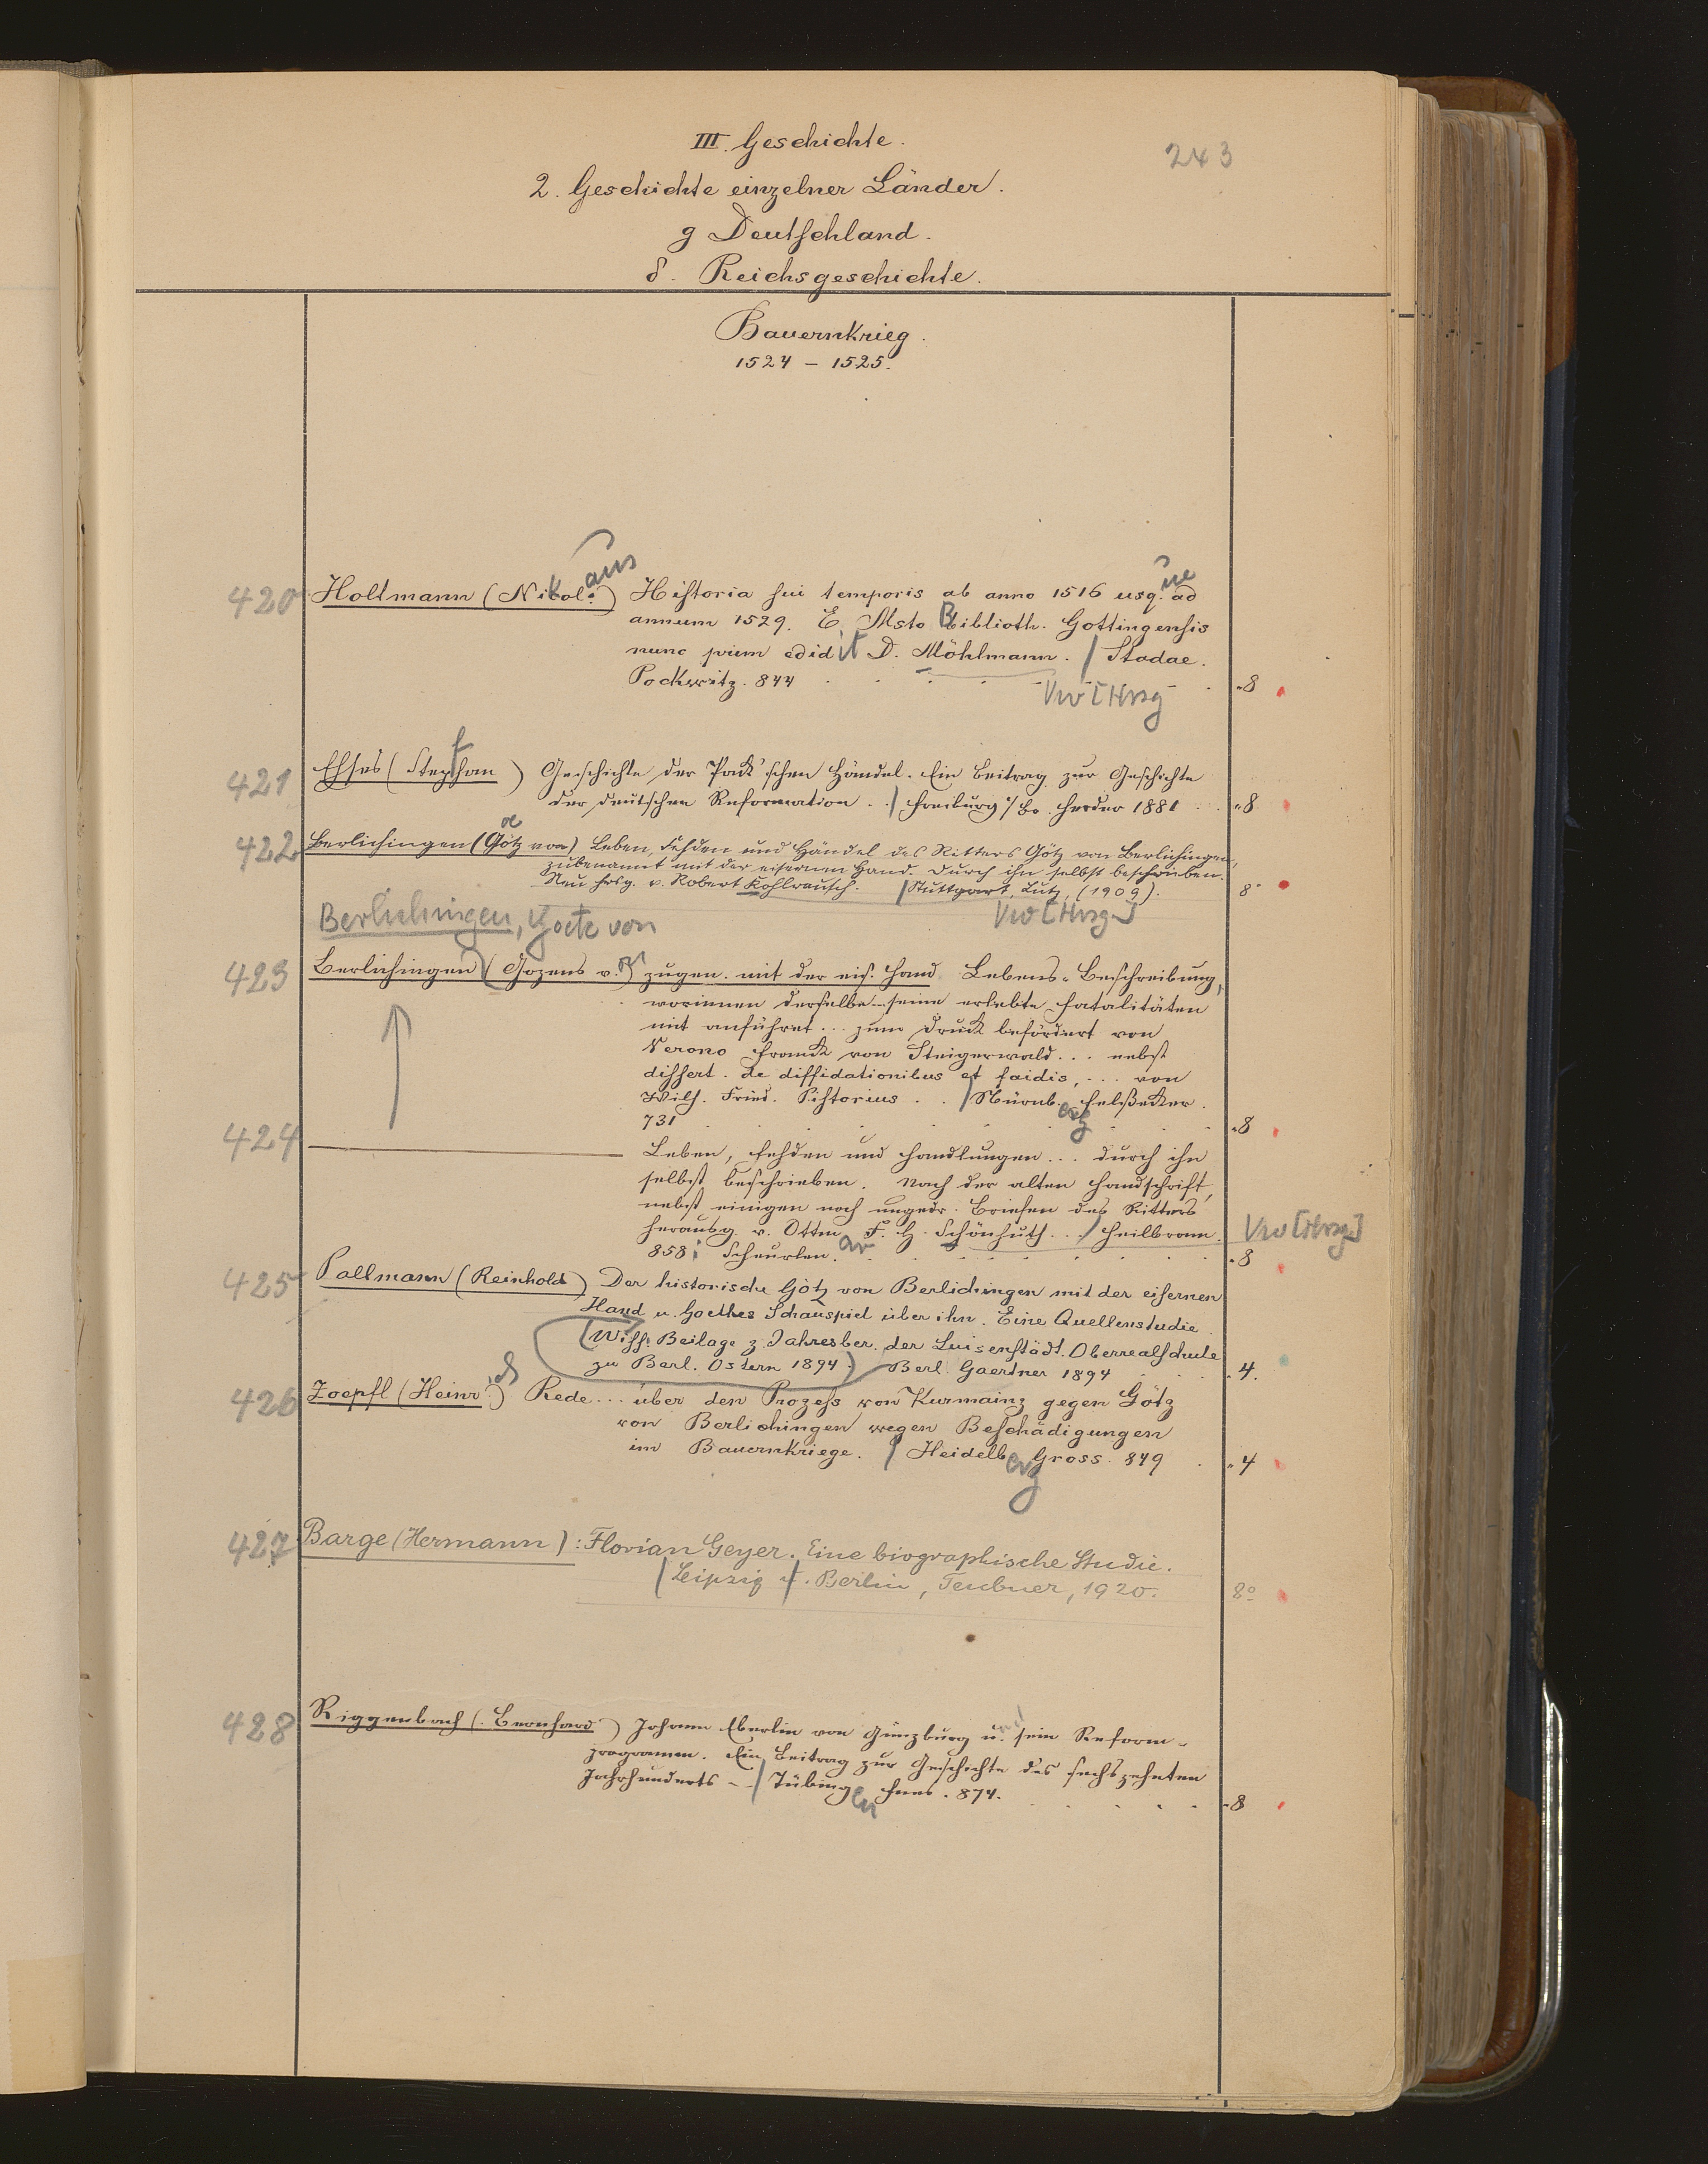 243
III. Geschichte.
2. Geschichte einzelner Länder.
g Deutschland.
δ. Reichsgeschichte.
Bauernkrieg.
1524 – 1525.
420 Holtmann (Nikolaus) Historia sui temporis ab anno 1516 usq.ue ad
annum 1529. E Msto Biblioth. Gottingensis
nunc prim edidit D. Möhlmann. / Stadae.
Pockwitz. 844 8
Vw [Hrsg
421 Ehses (Stephan) Geschichte der Pack'schen Händel. Ein Beitrag zur Geschichte
der deutschen Reformation. . / Freiburg i/Br. Herder 1881 . . 8
422 Berlichingen (Götz von) Leben, Fehden und Händel des Ritters Götz von Berlichingen,
zubenannt mit der eisernen Hand. Durch ihn selbst beschrieben.
Neu hrsg. v. Robert Kohlrausch. / Stuttgart, Lutz, (1909). 8°
Vw [Hrsg.]
Berlichingen, Goetz von
423 Berlichingen (Gozens v.) zugen. mit der eis. Hand Lebens-Beschreibung,
worinnen derselbe... seine erlebte Fatalitäten
mit anführet ... zum Druck befördert von
Verono Franck von Steigerwald ... nebst
dissert. de diffidationibus et faidis, ... von
Wilh. Fried. Pistorius . . / Nürnb.erg Felßecker.
731 8
424 ——— Leben, Fehden und Handlungen ... durch ihn
selbst beschrieben. Nach der alten Handschrift,
nebst einigen noch ungedr. Briefen des Ritters
herausg. v. Ottm F. H. Schönhuth ... / Heilbronn. Vw [Hrsg.]
858: Scheurlen. 8
ar
425 Pallmann (Reinhold) Der historische Götz von Berlichingen mit der eisernen
Hand u. Goethes Schauspiel über ihn. Eine Quellenstudie.
(Wiss. Beilage z. Jahresber. der Luisenstädt. Oberrealschule
zu Berl. Ostern 1894.) Berl. Gaertner 1894 4.
426 Zoepfl (Heinrich) Rede ... über den Prozess von Kurmainz gegen Götz
von Berlichingen wegen Beschädigungen
im Bauernkriege. / Heidelberg Gross. 849 . 4
427 Barge (Hermann): Florian Geyer. Eine biographische Studie.
/ Leipzig u. Berlin, Teubner, 1920. 8°
428 Riggenbach (Bernhard) Johann Eberlin von Günzburg und sein Reform-
programm. Ein Beitrag zur Geschichte des sechszehnten
Jahrhunderts – / Tübingen Fues. 874. 8